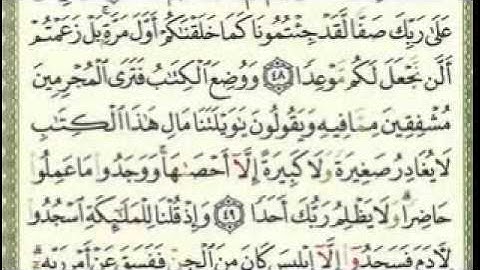 عَلَىٰ رَبِّكَ صَفًّا لَّقَدْ جِئْتُمُونَا كَمَا خَلَقْنَٰكُمْ أَوَّلَ مَرَّةٍۭ ۚ بَلْ زَعَمْتُمْ
أَلَّن نَّجْعَلَ لَكُم مَّوْعِدًا ٤٨ وَوُضِعَ ٱلْكِتَٰبُ فَتَرَى ٱلْمُجْرِمِينَ
مُشْفِقِينَ مِمَّا فِيهِ وَيَقُولُونَ يَٰوَيْلَتَنَا مَالِ هَٰذَا ٱلْكِتَٰبِ
لَا يُغَادِرُ صَغِيرَةً وَلَا كَبِيرَةً إِلَّآ أَحْصَىٰهَا ۚ وَوَجَدُوا۟ مَا عَمِلُوا۟
حَاضِرًا ۗ وَلَا يَظْلِمُ رَبُّكَ أَحَدًا ٤٩ وَإِذْ قُلْنَا لِلْمَلَٰٓئِكَةِ ٱسْجُدُوا۟
لِءَادَمَ فَسَجَدُوٓا۟ إِلَّآ إِبْلِيسَ كَانَ مِنَ ٱلْجِنِّ فَفَسَقَ عَنْ أَمْرِ رَبِّهِۦٓ ۗ